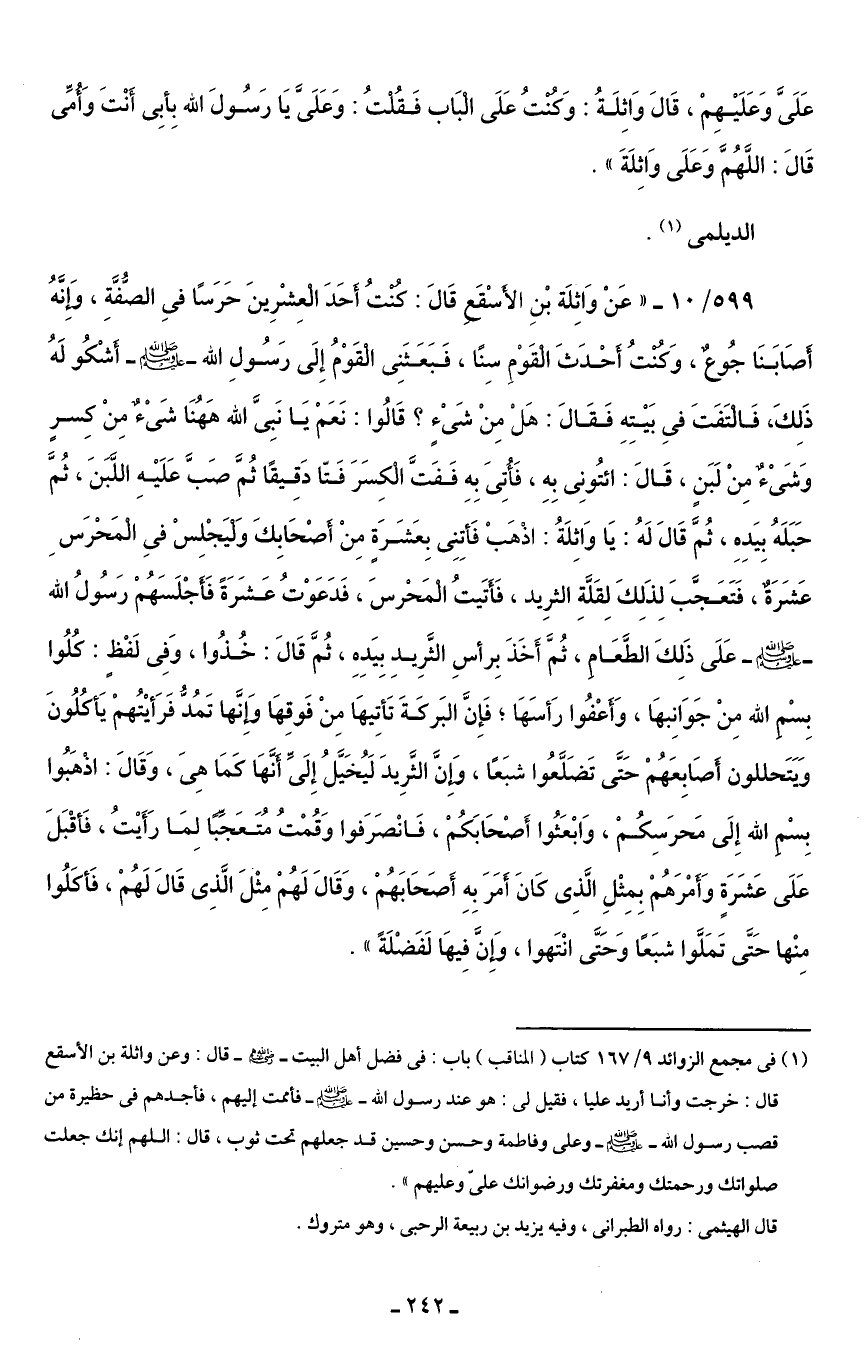 عَلَىَّ وَعَلَيْهِمْ ، قَالَ وَاثِلَةُ : وَكُنْتُ عَلَى الْبَابِ فَقُلْتُ : وَعَلَىَّ يَا رَسُولَ اللهِ بِأَبِى أَنْتَ وَأُمِّى
قَالَ : اللَّهُمَّ وَعَلَى وَاثِلَةَ » .
الديلمى (١) .
١٠/٥٩٩ ـ « عَنْ وَاثِلَةَ بْنِ الأَسْقَعِ قَالَ : كُنْتُ أَحَدَ الْعِشْرِينَ حَرَسًا فِى الصُّفَّةِ ، وَإِنَّهُ
أَصَابَنَا جُوعٌ ، وَكُنْتُ أَحْدَثَ الْقَوْمِ سِنًا ، فَبَعَثَنِى الْقَوْمُ إِلَى رَسُولِ اللهِ ـ ﷺ ـ أَشْكُو لَهُ
ذَلِكَ، فَالْتَفَتَ فِى بَيْتِهِ فَقَالَ : هَلْ مِنْ شَىْءٍ ؟ قَالُوا : نَعَمْ يَا نَبِىَّ اللهِ هَهُنَا شَىْءٌ مِنْ كِسرٍ
وَشَىْءٌ مِنْ لَبَنٍ ، قَالَ : ائتُونِى بِهِ ، فَأُتِىَ بِهِ فَفَتَّ الْكِسَرَ فَتّا دَقِيقًا ثُمَّ صَبَّ عَلَيْهِ اللَّبَنَ ، ثُمَّ
حَبَلَهُ بِيَدِهِ ، ثُمَّ قَالَ لَهُ : يَا وَاثِلَةُ : اذْهَبْ فَأتِنِى بِعَشَرَةٍ مِنْ أَصْحَابِكَ وَلْيَجْلِسْ فِى الْمَحْرَسِ
عَشَرَةٌ ، فَتَعَجَّبَ لِذَلِكَ لِقَلَّةِ الثريد ، فَأَتَيتُ الْمَحْرسَ ، فَدَعَوْتُ عَشَرَةً فَأَجْلَسَهُمْ رَسُولُ اللهِ
ـ ﷺ ـ عَلَى ذَلِكَ الطَّعَامِ ، ثُمَّ أَخَذَ بِرأسِ الثَّرِيدِ بِيَدِهِ ، ثُمَّ قَالَ : خُذُوا ، وَفِى لَفْظٍ : كُلُوا
بِسْمِ اللهِ مِنْ جَوَانِبِهَا ، وَأَعْفُوا رَأسَهَا ؛ فَإِنَّ البَرَكَةَ تَأتِيهَا مِنْ فَوقِهَا وَإِنَّها تَمُدُّ فَرَأَيْتُهمْ يَأكُلُونَ
وَيَتَحللون أَصَابِعَهُمْ حَتَّى تَضَلَّعُوا شبَعًا ، وَإِنَّ الثَّرِيدَ لَيُخَيَّلُ إِلَىِّ أَنَّهَا كَمَا هِىَ ، وَقَالَ : اذْهَبُوا
بِسْمِ اللهِ إِلَى مَحرَسِكُمْ ، وَابْعَثُوا أَصْحَابَكُمْ ، فَانْصَرَفوا وَقُمْتُ مُتَعَجِّبًا لِمَا رَأَيْتُ ، فَأَقْبَلَ
عَلَى عَشَرَةٍ وَأَمْرَهُمْ بِمِثْلِ الَّذِى كَانَ أَمَرَ بِهِ أَصحَابَهُمْ ، وَقَالَ لَهُمْ مِثْلَ الَّذِى قَالَ لَهُمْ ، فَأكَلُوا
مِنْها حَتَّى تَمَلَّوا شبَعًا وَحَتَّى انْتَهوا ، وَإِنَّ فِيهَا لَفَضْلَةً » .
(١) فى مجمع الزوائد ٩/ ١٦٧ كتاب ( المناقب ) باب : فى فضل أهل البيت ـ ﷺ ـ قال : وعن واثلة بن الأسقع
قال : خرجت وأنا أريد عليا ، فقيل لى : هو عند رسول الله ـ ﷺ ـ فأممت إليهم ، فأجدهم فى حظيرة من
قصب رسول الله ـ ﷺ ـ وعلى وفاطمة وحسن وحسين قد جعلهم تحت ثوب ، قال : اللهم إنك جعلت
صلواتك ورحمتك ومغفرتك ورضوانك علىّ وعليهم » .
قال الهيثمى : رواه الطبرانى ، وفيه يزيد بن ربيعة الرحبى ، وهو متروك .
ـ ٢٤٢ ـ